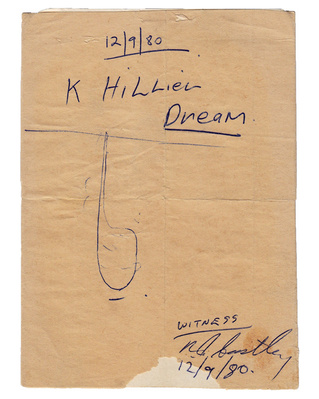 12/9/80
K HiLLier
Dream.
WITNESS
12/9/80.